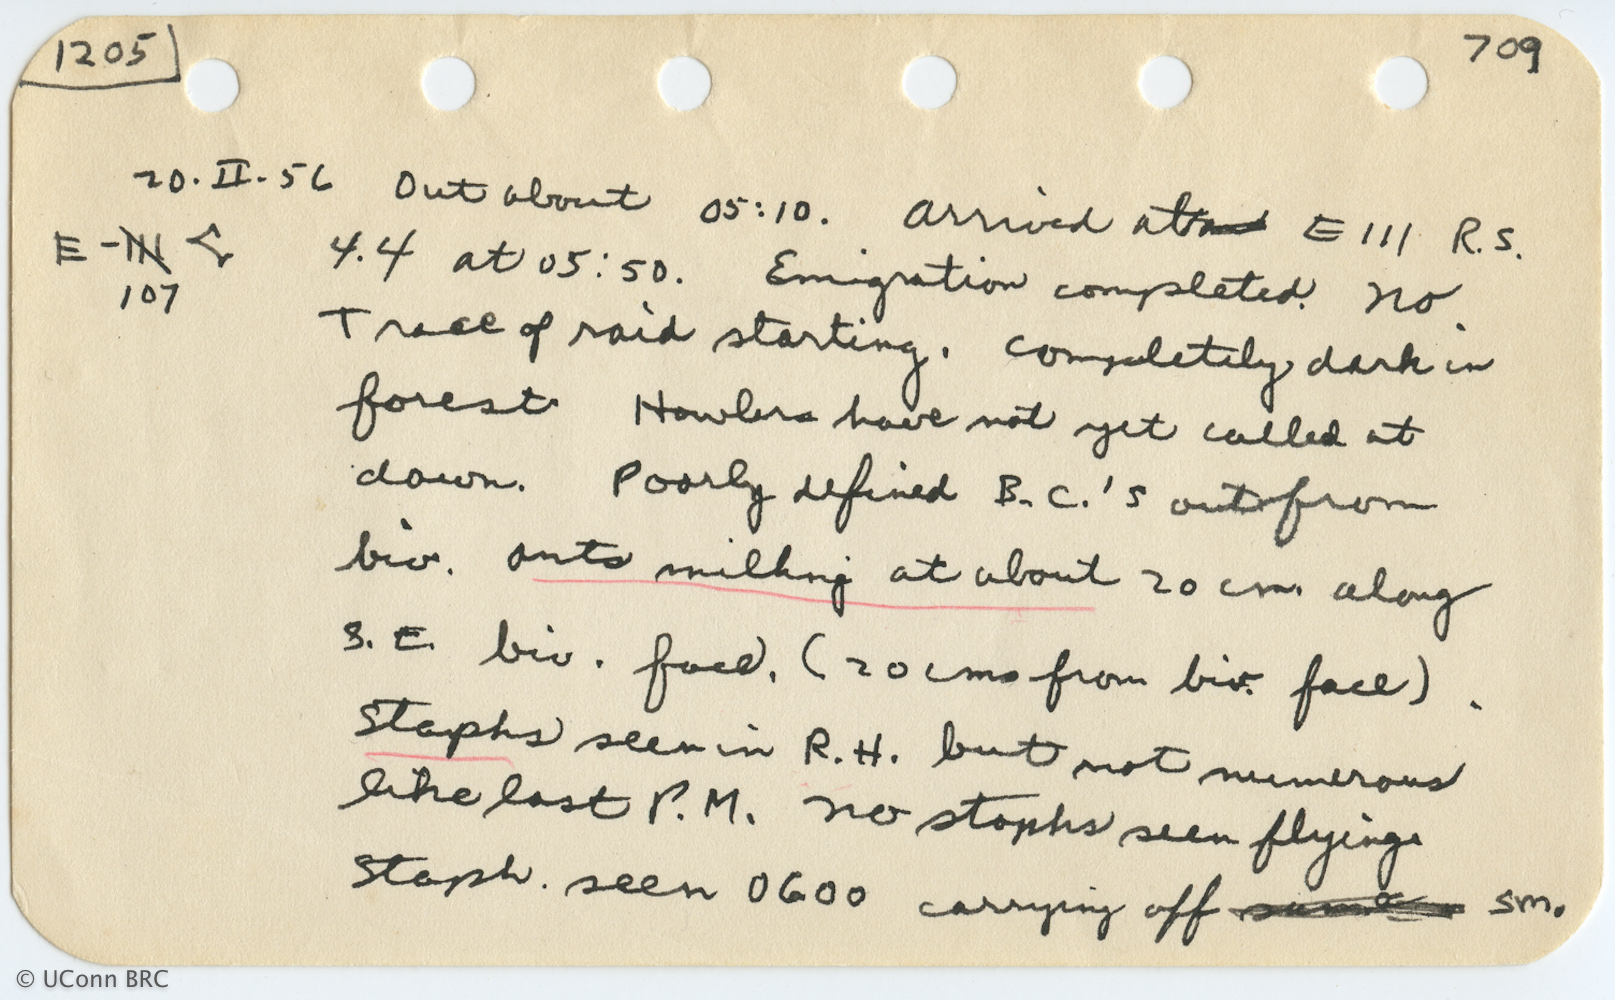 1205
709
20.II.56 Out about 05:10. Arrived at E III R.S.
E-
107
4.4 at 05:50. Emigration completed. No
Trace of raid starting. Completely dark in
forest. Howlers have not yet called at
dawn. Poorly defined B.C.'s out from
biv. Ants milling at about 20 cm. along
S.E. biv. face. (20 cms from biv. face).
Staphs seen in R.H. but not numerous
like last P.M. No staphs seen flying.
Staph. seen 0600 carrying off some sm.
© UConn BRC